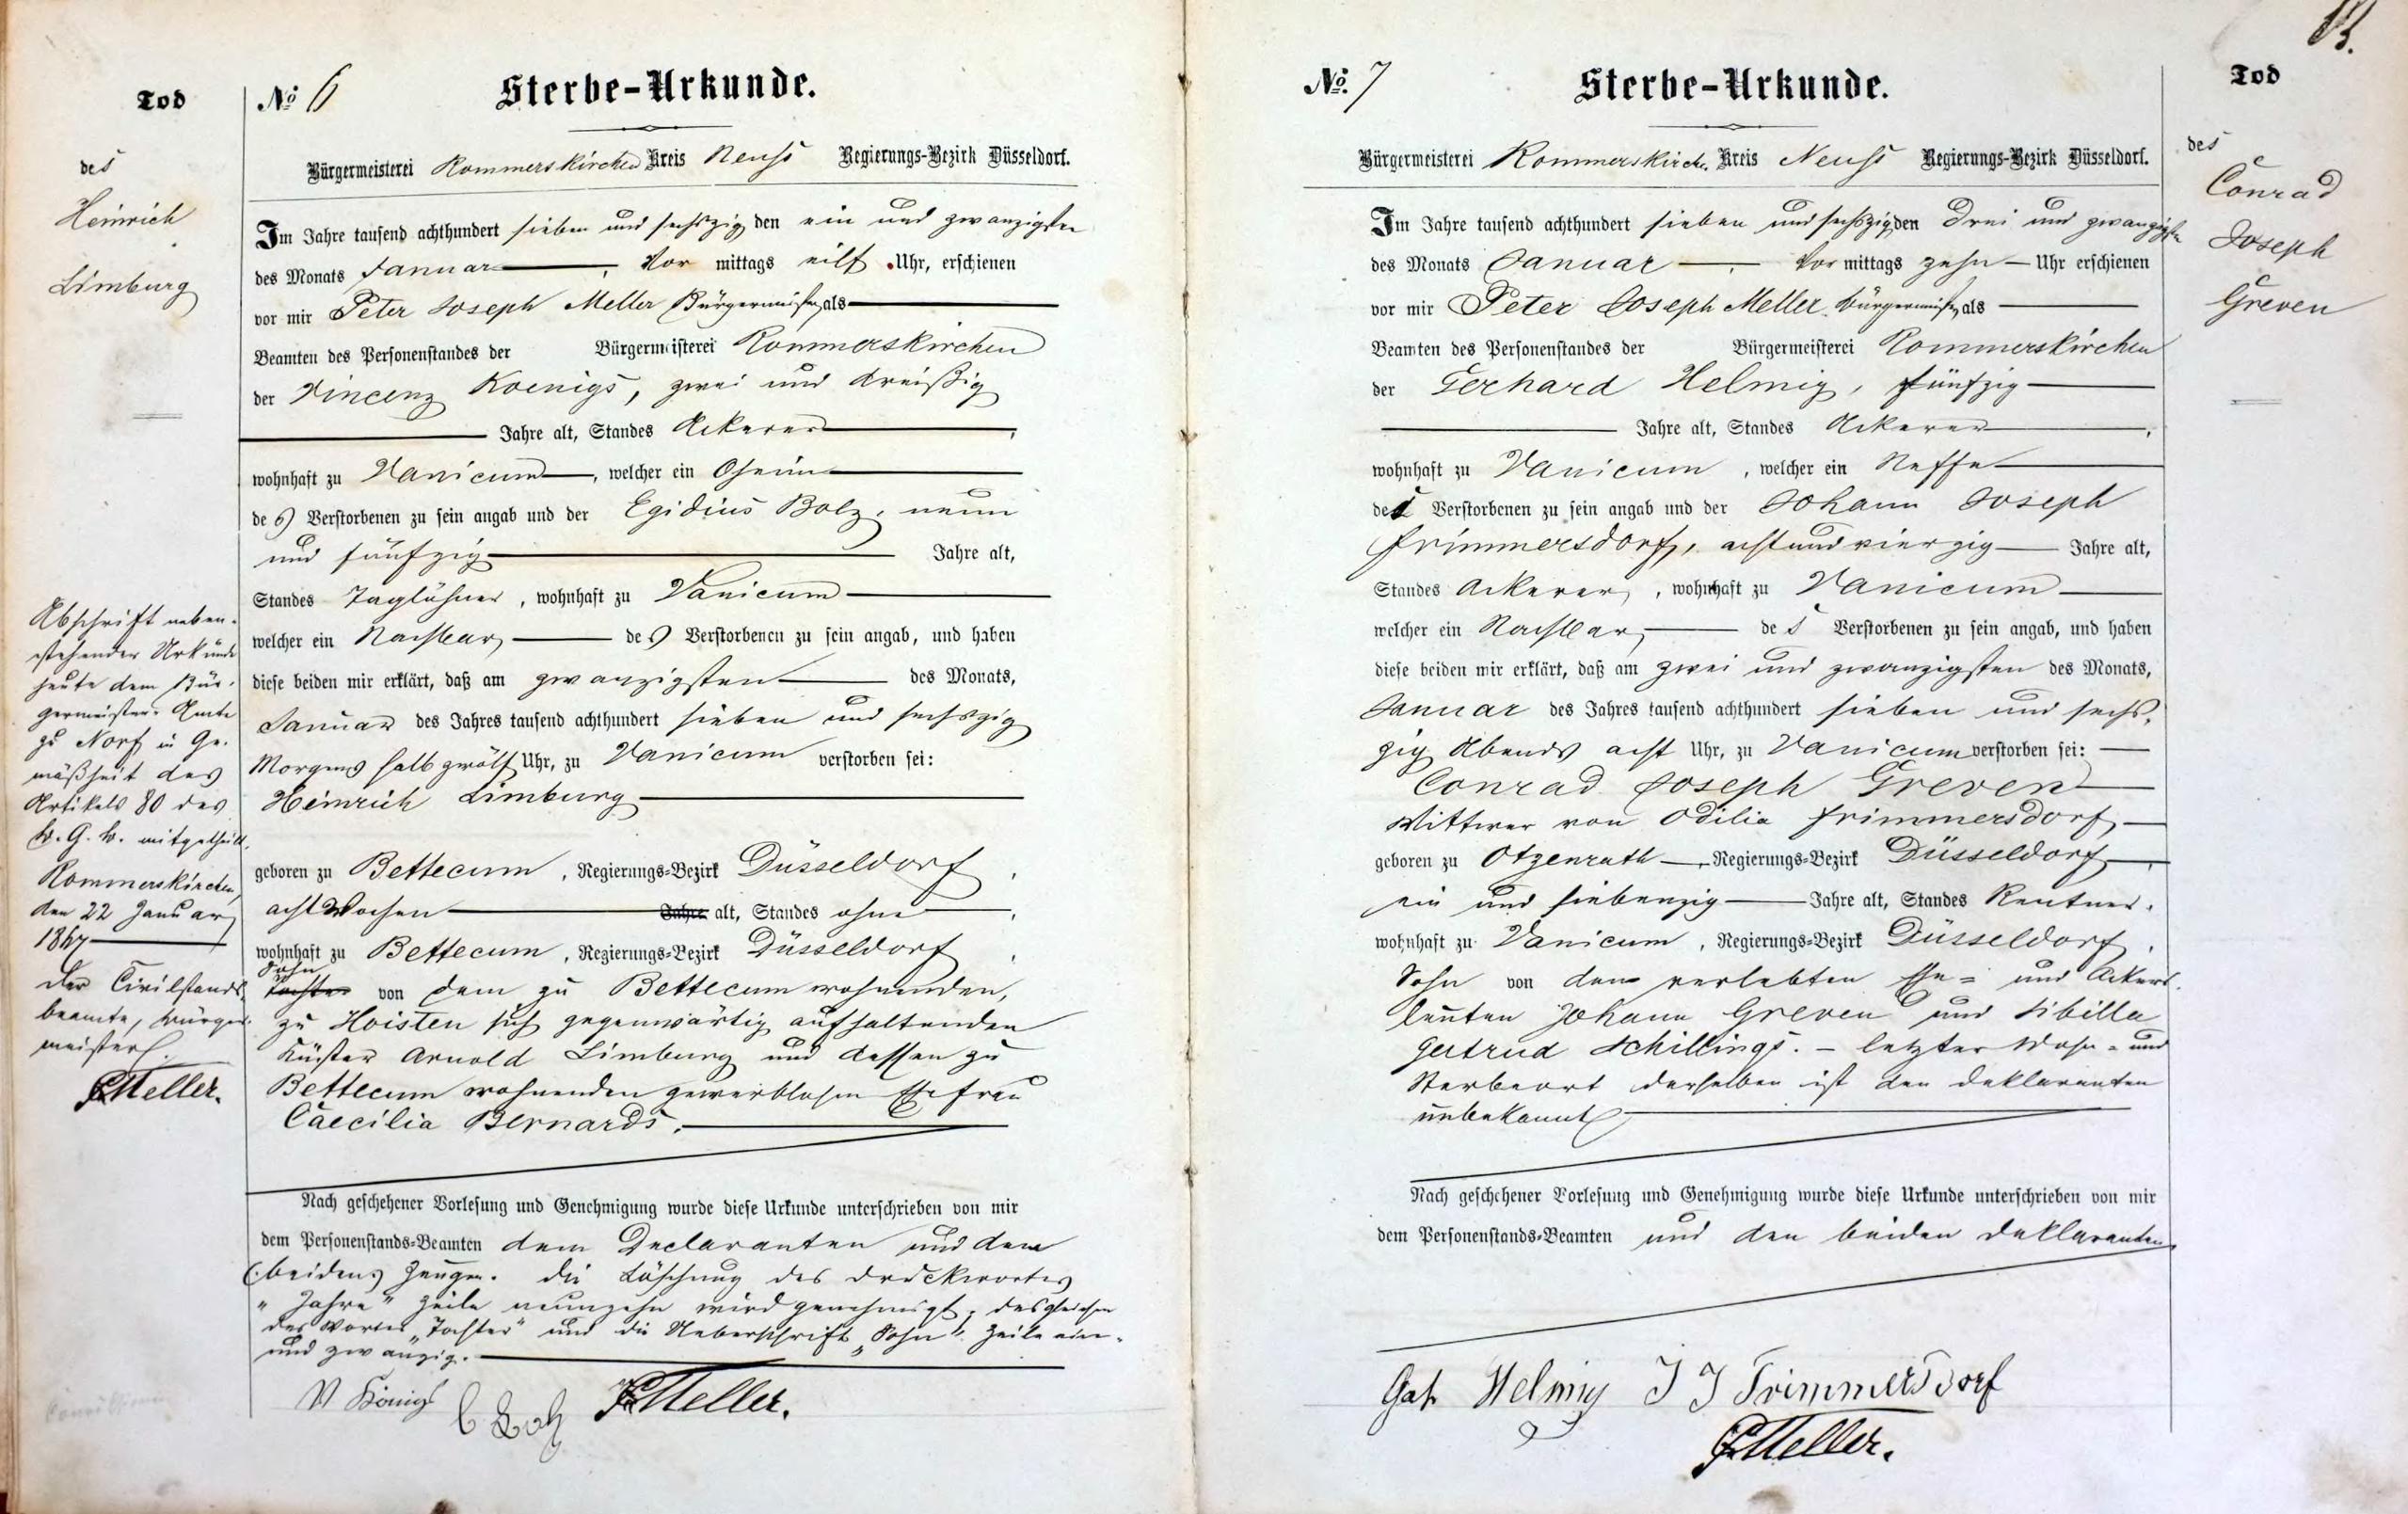 Tod
des
Heinrich
Limburg
Abschrift neben-
stehender Urkunde
heute dem Bür-
germeister-Amte
zu Norf in Ge-
mäßheit des
Artikels 80 des
B. G. B. mitgetheilt.
Rommerskirchen
den 22 Januar
1867
Der Civilstands-
beamte, Bürger-
meister
PJMeller.
№ 6 Sterbe-Urkunde.
Bürgermeisterei Rommerskirchen Kreis Neuss Regierungs-Bezirk Düsseldorf.
Im Jahre tausend achthundert sieben und sechszig den ein und zwanzigsten
des Monats Januar, Vor mittags eilf Uhr, erschienen
vor mir Peter Joseph Meller Bürgermeister als
Beamten des Personenstandes der Bürgermeisterei Rommerskirchen
der Vincenz Koenigs, zwei und dreißig
Jahre alt, Standes Ackerer,
wohnhaft zu Vanicum, welcher ein Oheim
des Verstorbenen zu sein angab und der Egidius Bolz, neun
und fünfzig Jahre alt,
Standes Taglöhner, wohnhaft zu Vanicum
welcher ein Nachbar des Verstorbenen zu sein angab, und haben
diese beiden mir erklärt, daß am zwanzigsten des Monats,
Januar des Jahres tausend achthundert sieben und sechszig
Morgens halb zwölf Uhr, zu Vanicum verstorben sei:
Heinrich Limburg
geboren zu Bettecum, Regierungs-Bezirk Düsseldorf,
acht Wochen Jahre alt, Standes ohne,
wohnhaft zu Bettecum, Regierungs-Bezirk Düsseldorf,
Sohn
Tochter von dem zu Bettecum wohnenden,
zu Hoisten sich gegenwärtig aufhaltenden
Küster Arnold Limburg und dessen zu
Bettecum wohnenden gewerblosen Ehefrau
Caecilia Bernards.
Nach geschehener Vorlesung und Genehmigung wurde diese Urkunde unterschrieben von mir
dem Personenstands-Beamten dem Declaranten und dem
(beiden) Zeugen. Die Löschung des Druckwortes
"Jahre" Zeile neunzehn wird genehmigt, desgleichen
des Wortes „Tochter" und die Ueberschrift „Sohn" Zeile ein-
und zwanzig.
V Königs E Bolz PJMeller.
13.
№ 7 Sterbe-Urkunde.
Bürgermeisterei Rommerskirchen Kreis Neuss Regierungs-Bezirk Düsseldorf.
Im Jahre tausend achthundert sieben und sechszig den drei und zwanzigsten
des Monats Januar, Vor mittags zehn Uhr erschienen
vor mir Peter Joseph Meller Bürgermeister als
Beamten des Personenstandes der Bürgermeisterei Rommerskirchen
der Gerhard Helmig, fünfzig
Jahre alt, Standes Ackerer,
wohnhaft zu Vanicum, welcher ein Neffe
des Verstorbenen zu sein angab und der Johann Joseph
Frimmersdorf, acht und vierzig Jahre alt,
Standes Ackerer, wohnhaft zu Vanicum
welcher ein Nachbar des Verstorbenen zu sein angab, und haben
diese beiden mir erklärt, daß am zwei und zwanzigsten des Monats,
Januar des Jahres tausend achthundert sieben und sechs-
zig Abends acht Uhr, zu Vanicum verstorben sei:
Conrad Joseph Greven
Wittwer von Odilia Frimmersdorf,
geboren zu Otzenrath, Regierungs-Bezirk Düsseldorf,
ein und siebenzig Jahre alt, Standes Rentner,
wohnhaft zu Vanicum, Regierungs-Bezirk Düsseldorf,
Sohn von den verlebten Ehe- und Ackers-
leuten Johann Greven und Sibilla
Gertrud Schillings. - letzter Wohn- und
Sterbeort derselben ist den Deklaranten
unbekannt
Nach geschehener Vorlesung und Genehmigung wurde diese Urkunde unterschrieben von mir
dem Personenstands-Beamten und den beiden Deklaranten
Helmig J J Frimmersdorf
PJMeller.
Tod
des
Conrad
Joseph
Greven